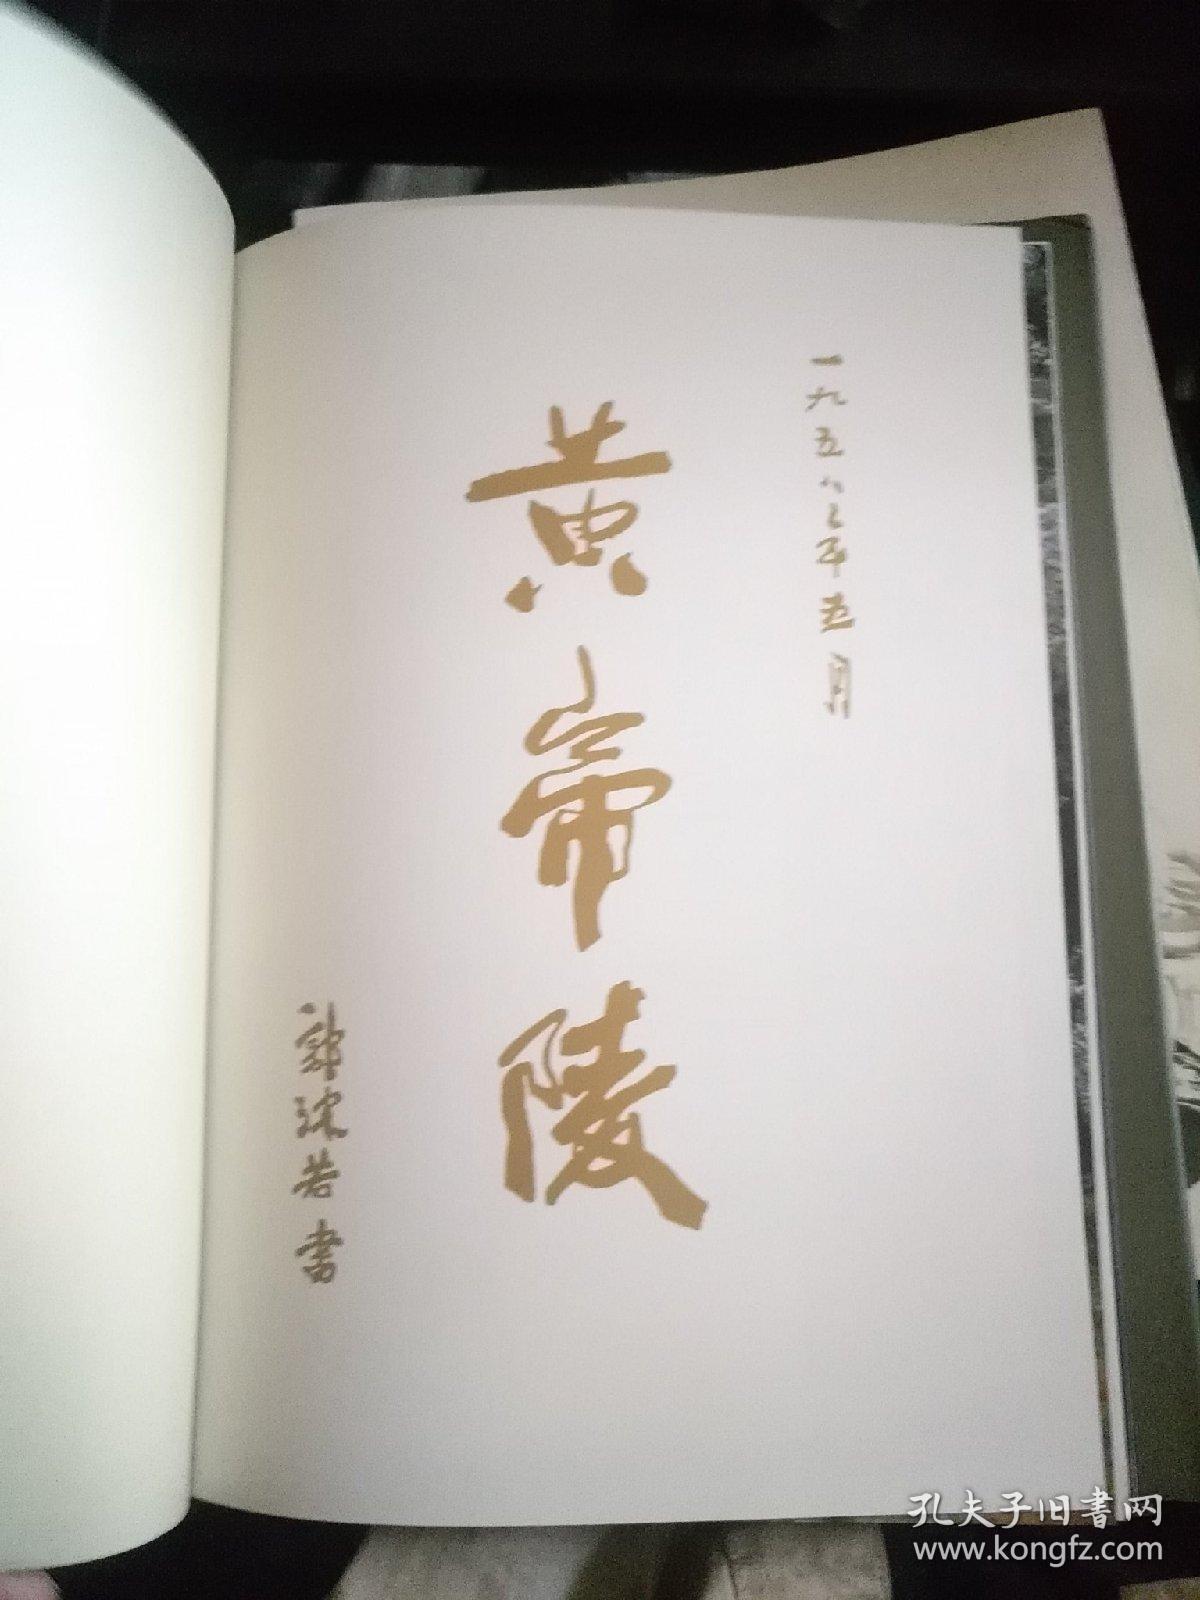 一九五八年五月
黄帝陵
郭沫若書
孔夫子旧書网
www.kongfz.com